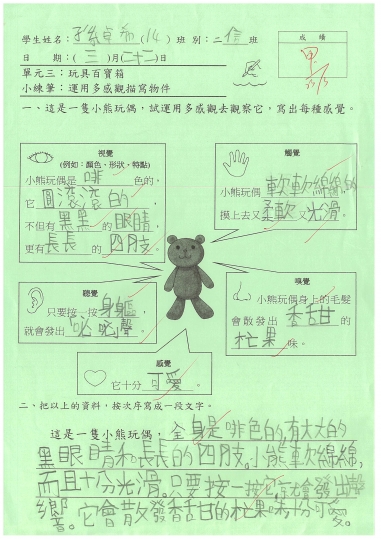 學生姓名：孫卓希(14)班別：二信班
成績
甲
日期：(三)月(二十二)日
單元三：玩具百寶箱
小練筆：運用多感觀描寫物件
一、這是一隻小熊玩偶，試運用多感觀去觀察它，寫出每種感覺。
視覺
(例如：顏色、形狀、特點)
小熊玩偶是啡色的，
它圓滾滾的，
不但有黑黑的眼睛，
更有長長的四肢。
觸覺
小熊玩偶軟軟綿綿的，
摸上去又柔軟又光滑。
聽覺
只要按一按身軀，
就會發出聲。
嗅覺
小熊玩偶身上的毛髮
會散發出香甜的
芒果味。
感覺
它十分可愛。
二、把以上的資料，按次序寫成一段文字。
這是一隻小熊玩偶，全身是啡色的有大大的
黑眼睛和長長的四肢。小熊軟綿綿，
而且十分光滑。只要按一按它就會發出聲
響。它會散發香甜的芒果味十分可愛。